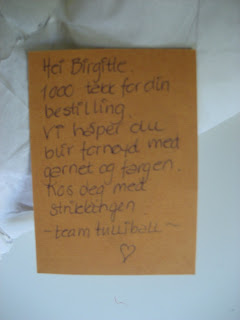 Hei Birgitte.
1000 takk for din
bestilling.
Vi håper du
blir fornøyd med
garnet og fargen.
Kos deg med
strikkingen
~team tulliball~